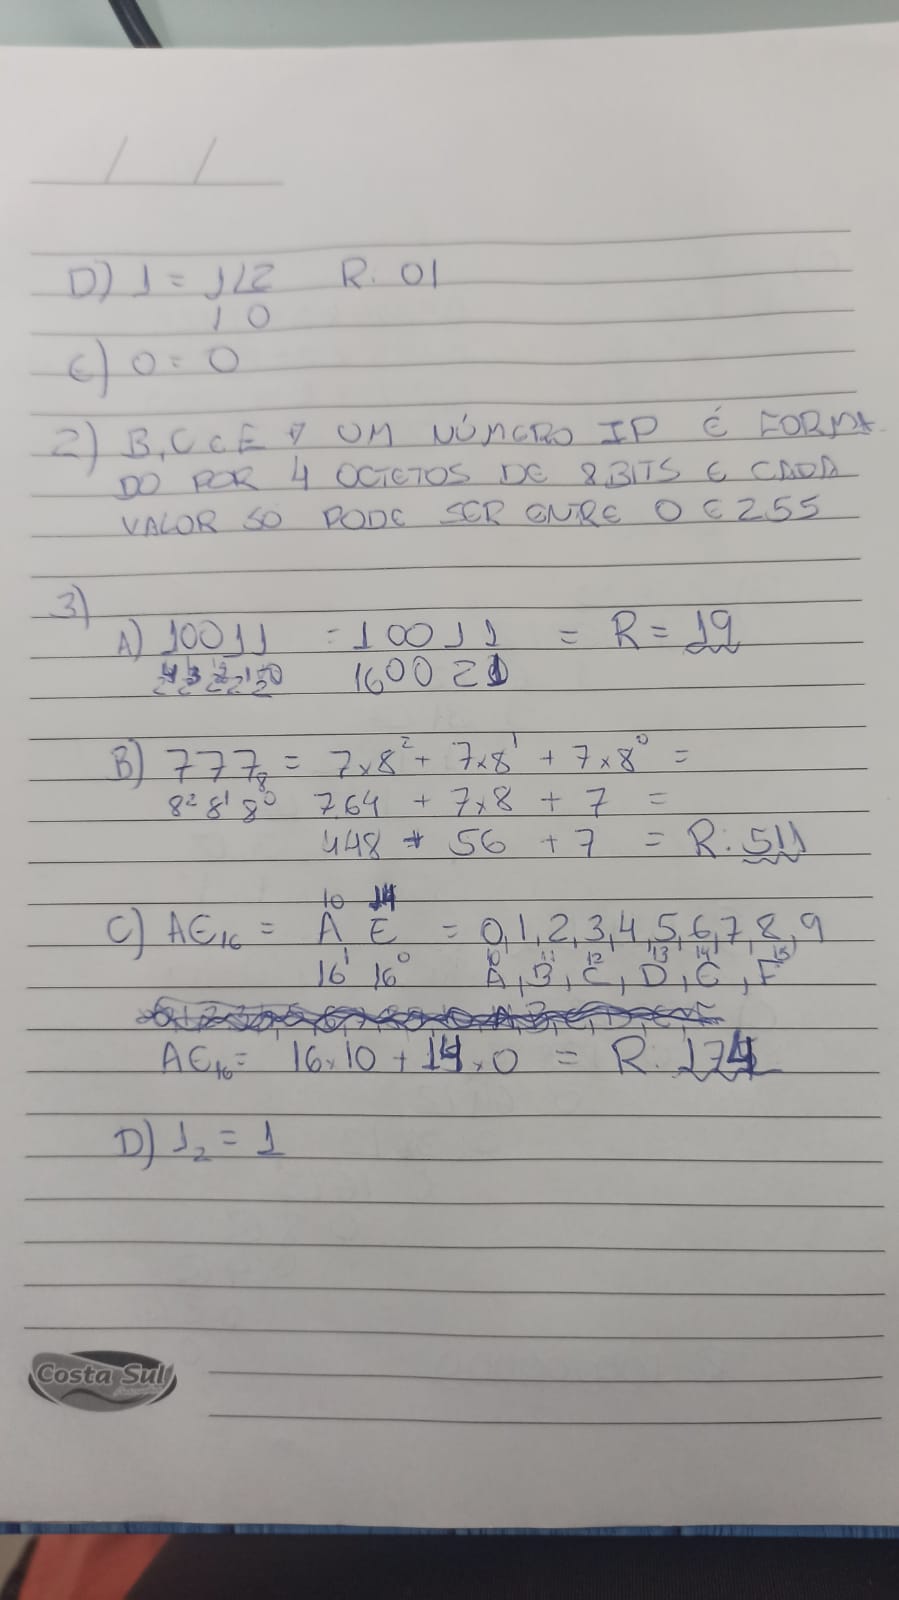 D) 1 = 1/2 R. 01
1 0
E) 0 = 0
2) B, C e E → UM NÚMERO IP É FORMA
DO POR 4 OCTETOS DE 8 BITS E CADA
VALOR SO PODE SER ENTRE 0 E 255
3)
A) 10011 = 10011 = R = 19
2⁴2³2²2¹2⁰ 160021
B) 777₈ = 7x8² + 7x8¹ + 7x8⁰ =
8² 8¹ 8⁰ 7.64 + 7x8 + 7 =
448 + 56 + 7 = R: 511
10 14
C) AE₁₆ = A E = 0,1,2,3,4,5,6,7,8,9
10 11 12 13 14 15
16¹ 16⁰ A, B, C, D, E, F
AE₁₆ = 16x10 + 14x0 = R: 174
D) 1₂ = 1
Costa Sul